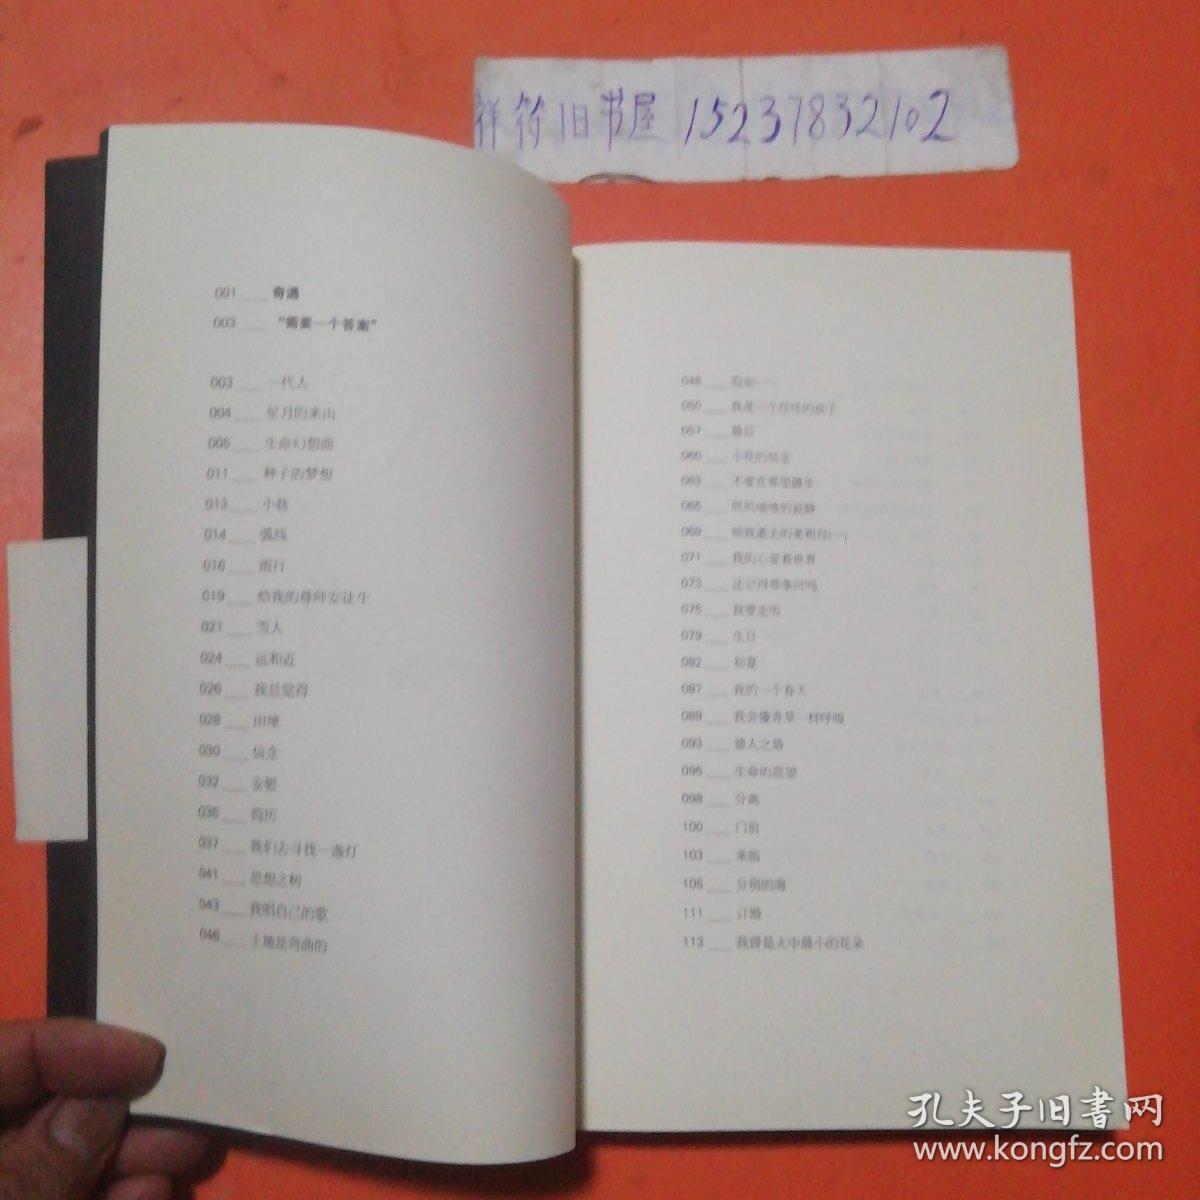 祥符旧书屋 15237832102
001 奇遇
003 "需要一个答案"
003 一代人
004 星月的来由
005 生命幻想曲
011 种子的梦想
013 小巷
014 弧线
016 雨行
019 给我的尊师安徒生
021 雪人
024 远和近
026 我总觉得
028 田埂
030 信念
032 安慰
035 简历
037 我们去寻找一盏灯
041 思想之树
043 我唱自己的歌
046 土地是弯曲的
048 假如……
050 我是一个任性的孩子
057 最后
060 小花的信念
063 不要在那里踱步
065 叽叽喳喳的寂静
069 给我逝去的老祖母(一)
071 我的心爱着世界
073 还记得那条河吗
075 我要走啦
079 生日
082 初夏
087 我的一个春天
089 我会像青草一样呼吸
093 猿人之猎
095 生命的愿望
098 分离
100 门前
103 来临
105 分别的海
111 订婚
113 我曾是火中最小的花朵
孔夫子旧書网
www.kongfz.com